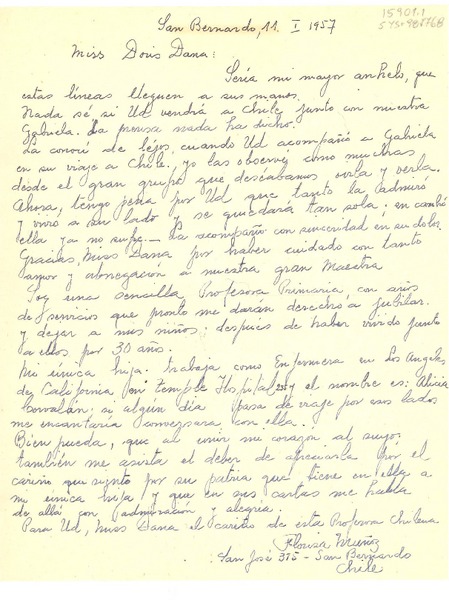 15901.1
San Bernardo, 11 I 1957
Miss Doris Dana:
Sería mi mayor anhelo, que
estas líneas lleguen a sus manos.
Nada sé si Ud vendrá a Chile junto con nuestra
Gabriela. La prensa nada ha dicho.
La conocí de lejos, cuando Ud acompañó a Gabriela
en su viaje a Chile, yo las observé como muchas
desde el gran grupo que deseábamos oirla y verla.
Ahora, tengo pena por Ud que tanto la admiró
y vivió a su lado y se quedará tan sola; en cambio
ella ya no sufre. La acompaño con sinceridad en su dolor.
Gracias, Miss Dana por haber cuidado con tanto
amor y abnegación a nuestra gran Maestra
Soy una sencilla Profesora Primaria con años
de servicios que pronto me darán derecho a jubilar.
y dejar a mis niños; despues de haber vivido junto
a ellos por 30 años.
Mi única hija trabaja como Enfermera en Los Angeles
de California en Temple Hospital y el nombre es: Alicia
si algun día pasa de viaje por esos lados
me encantaría conversara con ella.
Bien pueda, que al unir mi corazon al suyo
también me asista el deber de apreciarla por el
cariño que siento por su patria que tiene en ella a
mi única hija y que en sus cartas me habla
de allá con admiracion y alegria.
Para Ud, Miss Dana el cariño de esta Profesora Chilena
Florisa Muñoz
San José 375 - San Bernardo
Chile